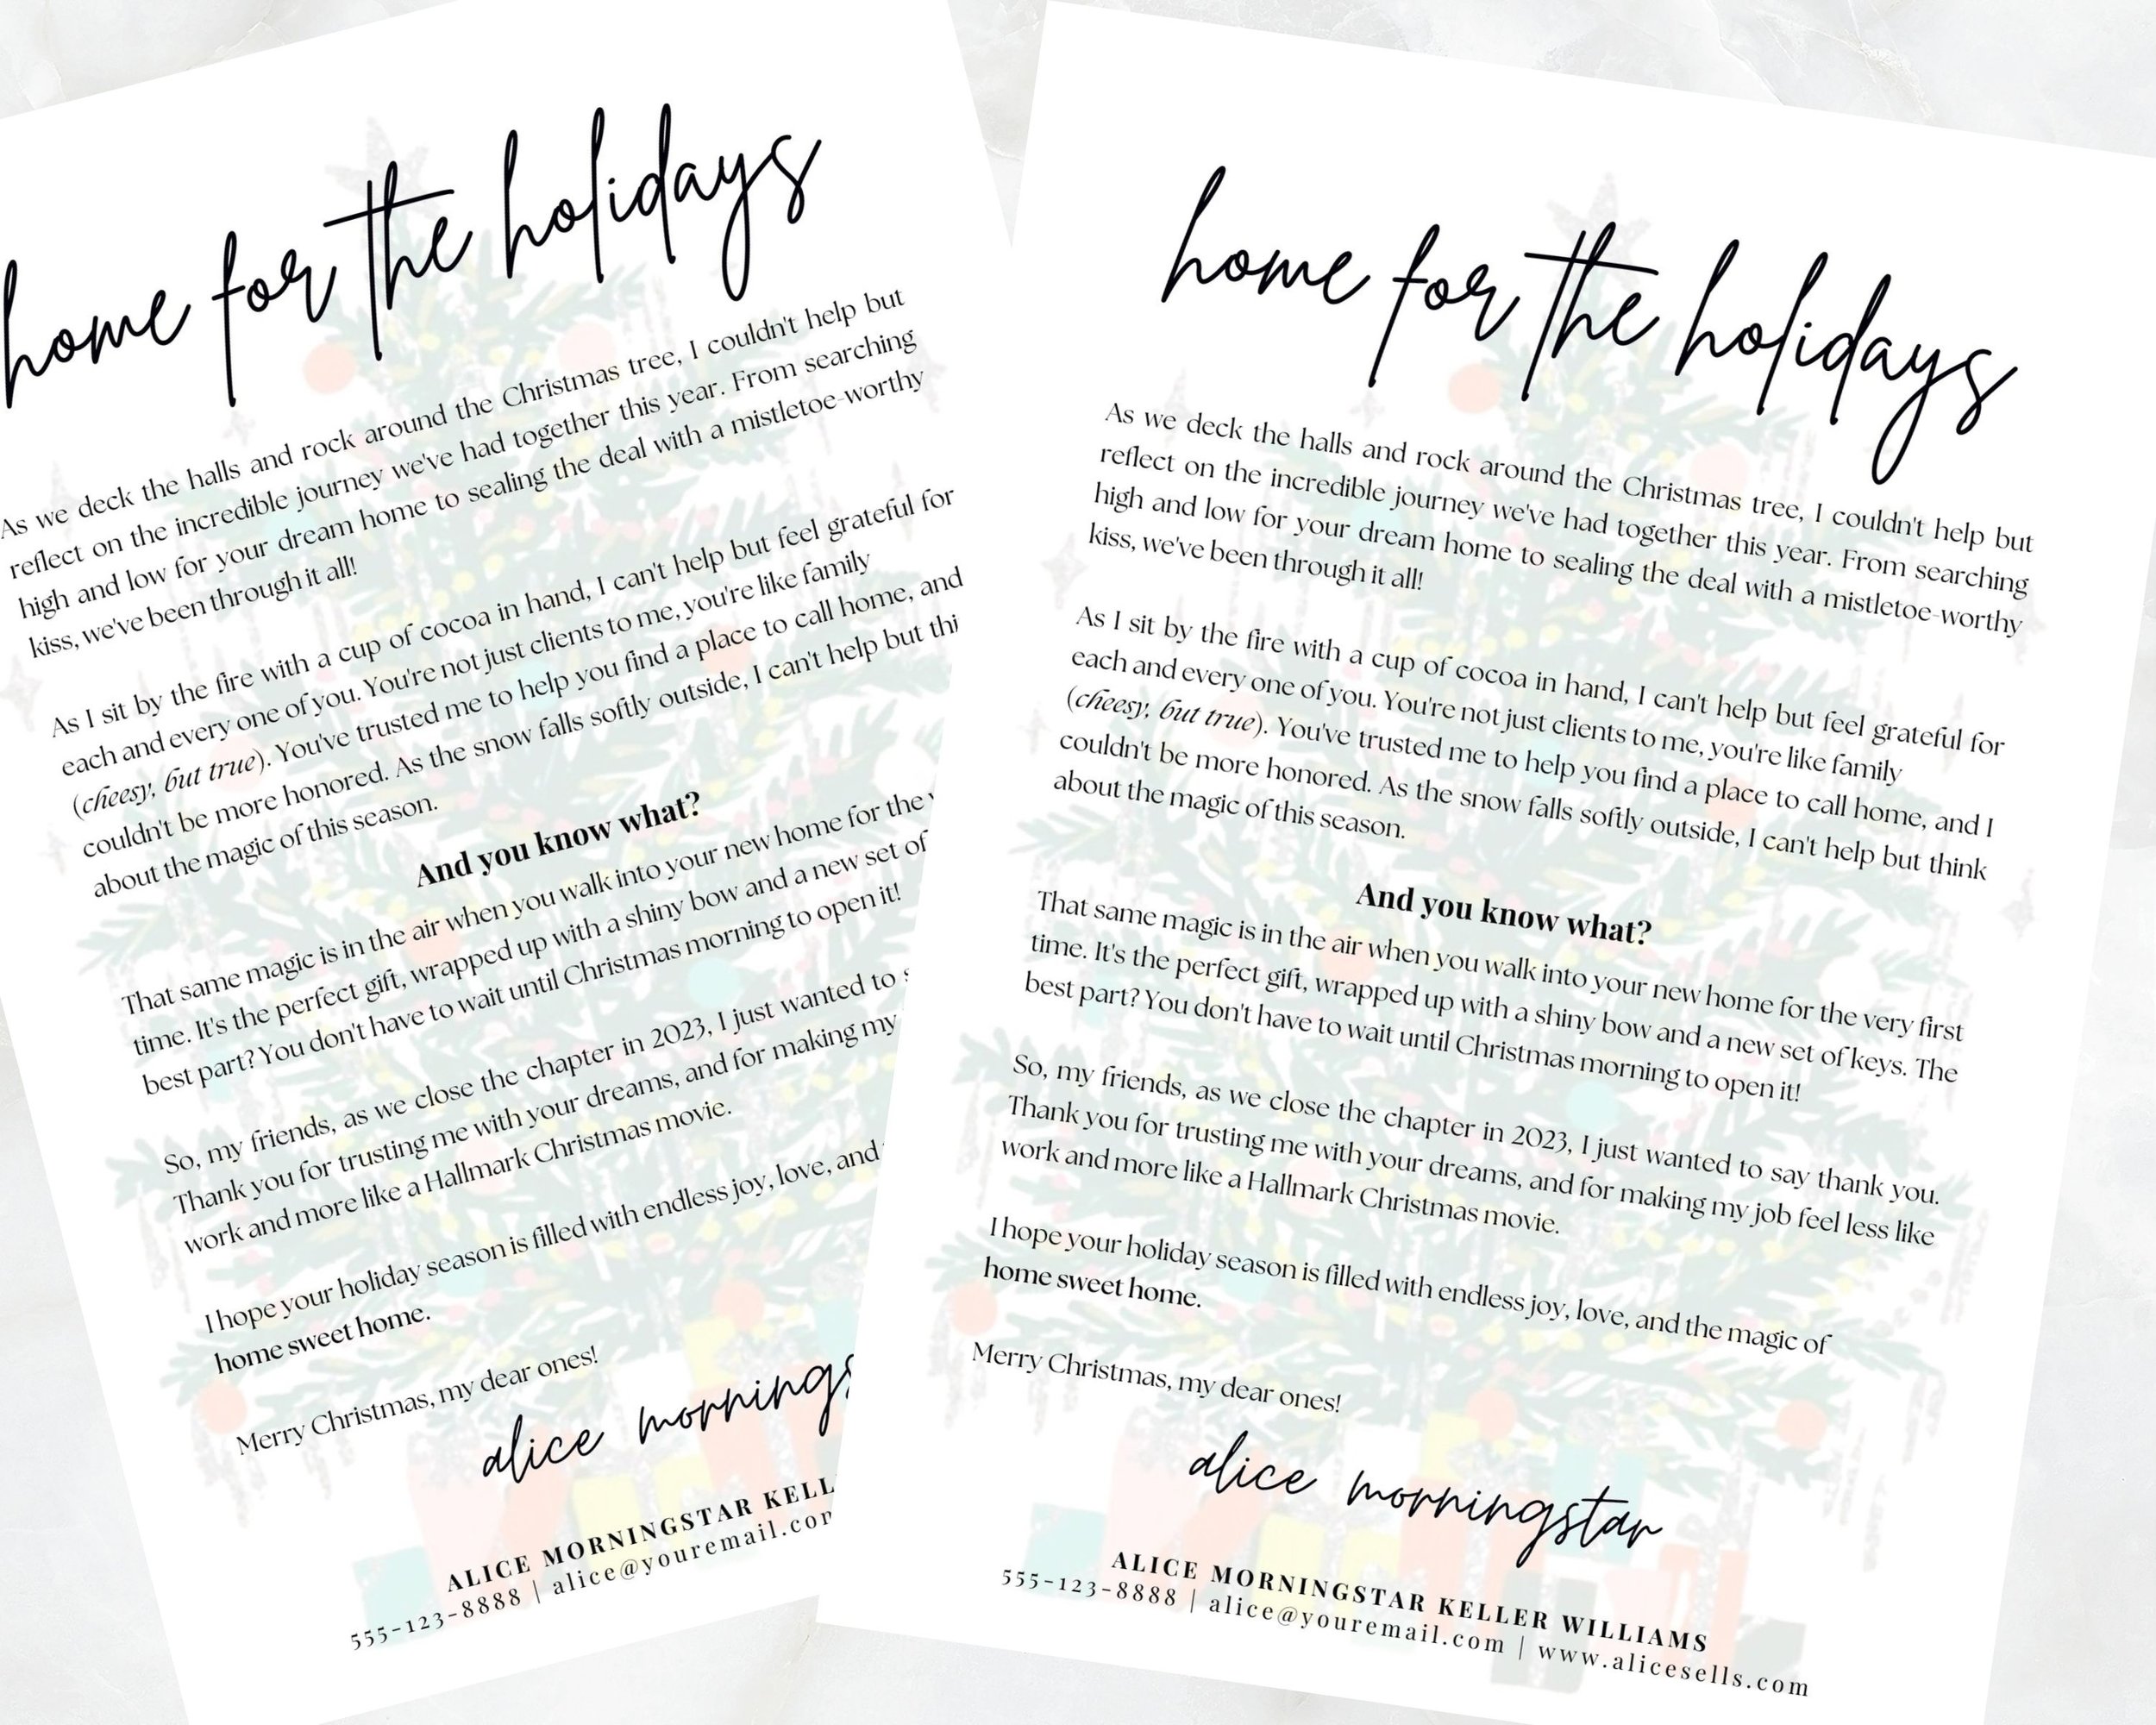 home for the holidays
As we deck the halls and rock around the Christmas tree, I couldn't help but
reflect on the incredible journey we've had together this year. From searching
high and low for your dream home to sealing the deal with a mistletoe-worthy
kiss, we've been through it all!
As I sit by the fire with a cup of cocoa in hand, I can't help but feel grateful for
each and every one of you. You're not just clients to me, you're like family
(cheesy, but true). You've trusted me to help you find a place to call home, and
couldn't be more honored. As the snow falls softly outside, I can't help but thi
about the magic of this season.
And you know what?
That same magic is in the air when you walk into your new home for the
time. It's the perfect gift, wrapped up with a shiny bow and a new set of
best part? You don't have to wait until Christmas morning to open it!
So, my friends, as we close the chapter in 2023, I just wanted to s
Thank you for trusting me with your dreams, and for making my
work and more like a Hallmark Christmas movie.
I hope your holiday season is filled with endless joy, love, and
home sweet home.
Merry Christmas, my dear ones!
alice mornings
ALICE MORNINGSTAR KELL
555-123-8888 | alice@youremail.com
home for the holidays
As we deck the halls and rock around the Christmas tree, I couldn't help but
reflect on the incredible journey we've had together this year. From searching
high and low for your dream home to sealing the deal with a mistletoe-worthy
kiss, we've been through it all!
As I sit by the fire with a cup of cocoa in hand, I can't help but feel grateful for
each and every one of you. You're not just clients to me, you're like family
(cheesy, but true). You've trusted me to help you find a place to call home, and I
couldn't be more honored. As the snow falls softly outside, I can't help but think
about the magic of this season.
And you know what?
That same magic is in the air when you walk into your new home for the very first
time. It's the perfect gift, wrapped up with a shiny bow and a new set of keys. The
best part? You don't have to wait until Christmas morning to open it!
So, my friends, as we close the chapter in 2023, I just wanted to say thank you.
Thank you for trusting me with your dreams, and for making my job feel less like
work and more like a Hallmark Christmas movie.
I hope your holiday season is filled with endless joy, love, and the magic of
home sweet home.
Merry Christmas, my dear ones!
alice morningstar
ALICE MORNINGSTAR KELLER WILLIAMS
555-123-8888 | alice@youremail.com | www.alicesells.com